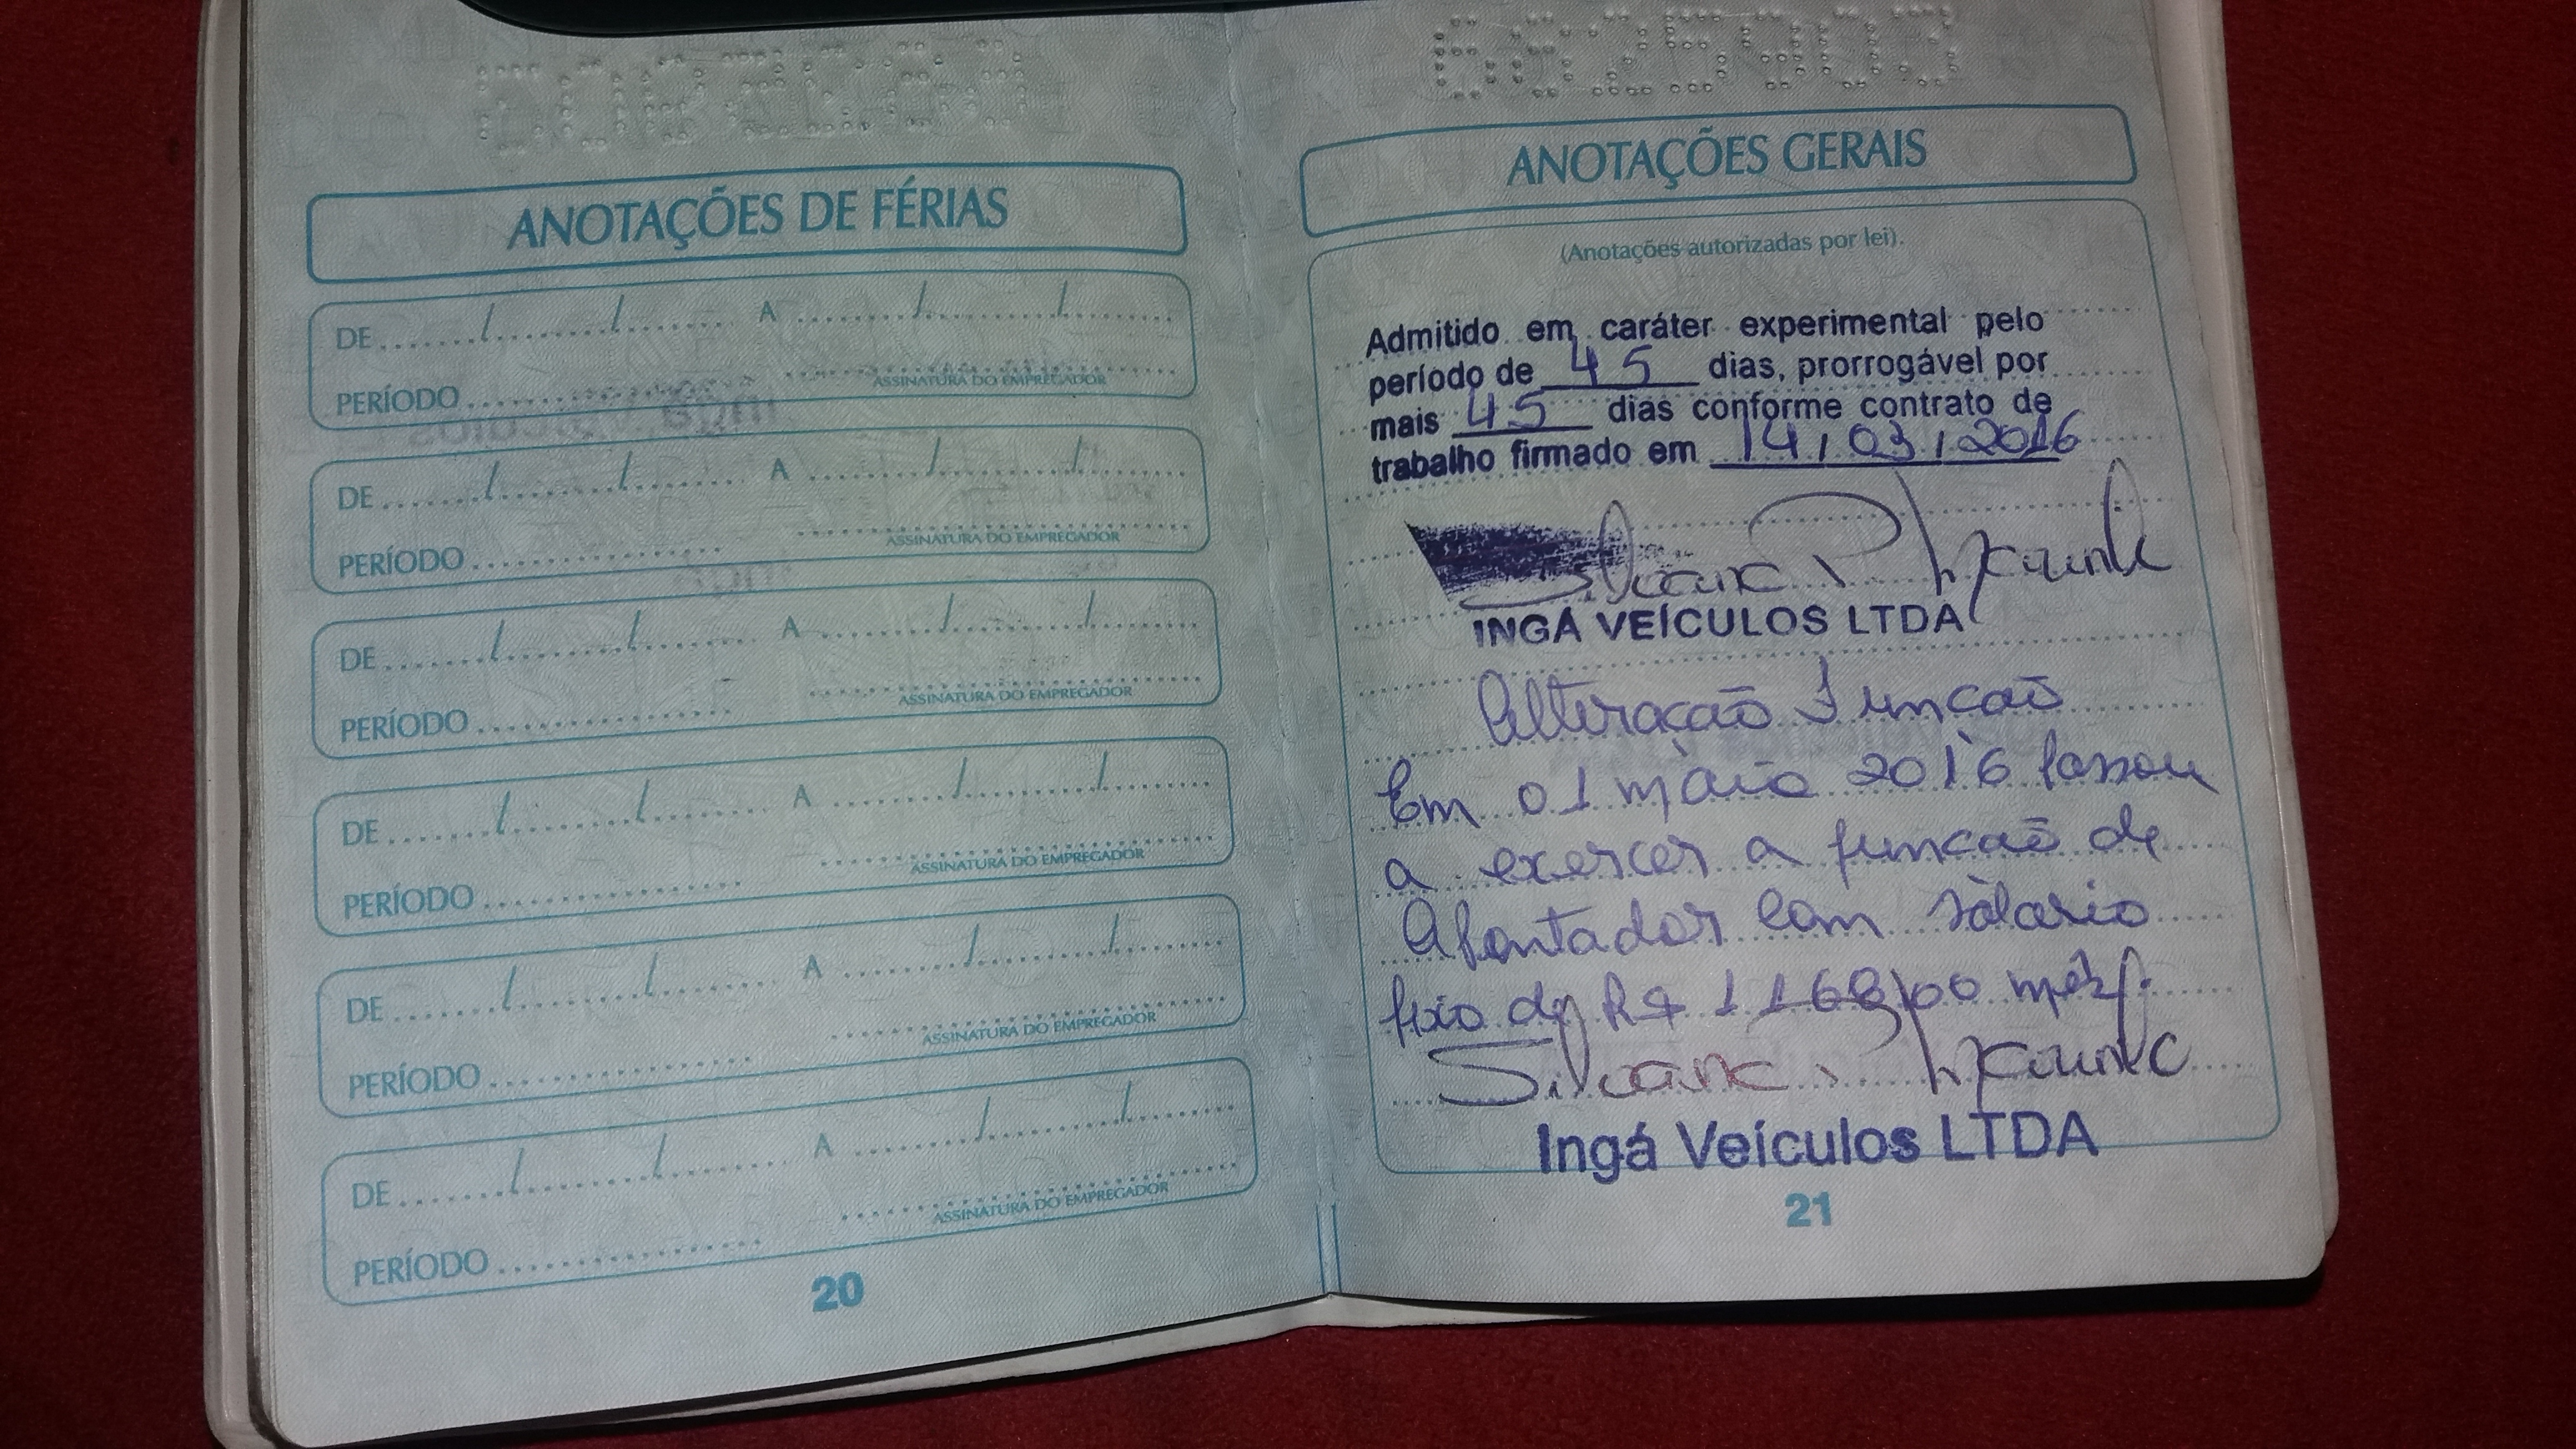 ANOTAÇÕES DE FÉRIAS
DE / / A / /
PERÍODO ASSINATURA DO EMPREGADOR
DE / / A / /
PERÍODO ASSINATURA DO EMPREGADOR
DE / / A / /
PERÍODO ASSINATURA DO EMPREGADOR
DE / / A / /
PERÍODO ASSINATURA DO EMPREGADOR
DE / / A / /
PERÍODO ASSINATURA DO EMPREGADOR
DE / / A / /
PERÍODO ASSINATURA DO EMPREGADOR
20
ANOTAÇÕES GERAIS
(Anotações autorizadas por lei).
Admitido em caráter experimental pelo
período de 45 dias, prorrogável por
mais 45 dias conforme contrato de
trabalho firmado em 14/03/2016
INGÁ VEÍCULOS LTDA
Alteração Funcão
Em 01 maio 2016 Passou
a exercer a funcão de
Apontador com sàlario
fixo de R$ 1.168,00 mês
Ingá Veículos LTDA
21